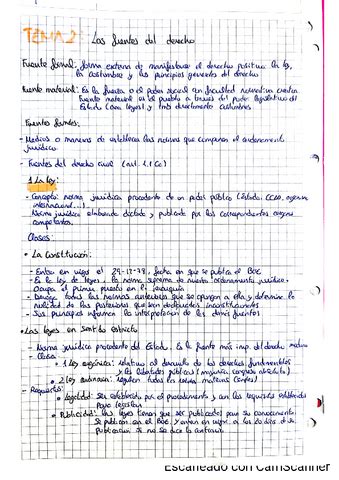 TEMA 2 Las fuentes del derecho
Fuente formal: forma externa de manifestarse el derecho positivo la ley,
la costumbre y los principios generales del derecho
Fuente material: Es la fuerza o el poder social con facultad normativa creadora
Fuente material es el pueblo a través del poder legislativo del
Estado (con leyes) y más directamente costumbres
Fuentes formales:
- Medios o maneras de establecer las normas que componen el ordenamiento
jurídico
- Fuentes del derecho civil (art. 1.1 Cc)
1. La ley:
- Concepto: norma jurídica procedente de un poder público (Estado, CCAA, organismo
internacional...)
Norma jurídica elaborada dictada y publicada por los correspondientes órganos
competentes.
Clases:
• La Constitución:
- Entra en vigor el 29-12-78, fecha en que se publica el BOE
- Es la ley de leyes, la norma suprema de nuestro ordenamiento jurídico.
Ocupa el primer puesto en la jerarquía
- Deroga todas las normas anteriores que se opongan a ella y determina la
nulidad de las posteriores que sean declaradas inconstitucionales
- Sus principios informan la interpretación de las demás fuentes
• Las leyes en sentido estricto
- Norma jurídica procedente del Estado. Es la fuente más imp. del derecho moderno
- Clases:
• 1 Ley orgánica: relativas al desarrollo de los derechos fundamentales
y las libertades públicas (mayoría congreso absoluta)
• 2 Ley ordinaria: regulan todas las demás materias
- Requisitos:
• Legalidad: Ser establecida por el procedimiento y con los requisitos establecidos
para legislar
• Publicidad: Las leyes tienen que ser publicadas para su conocimiento.
Se publican en el BOE y entran en vigor a los 20 días de su
publicación si no se dice lo contrario.
Escaneado con CamScanner